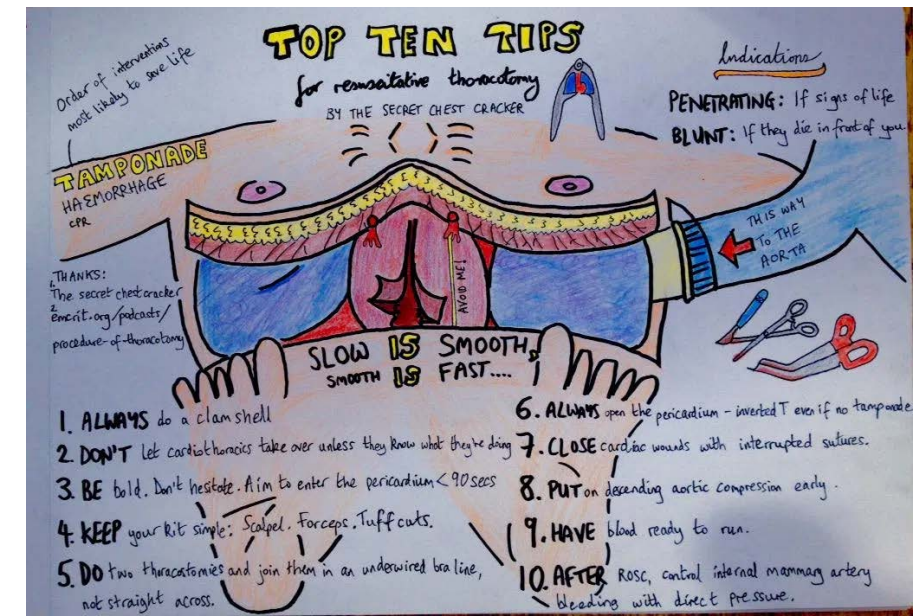 TOP TEN TIPS
for resuscitative thoracotomy
BY THE SECRET CHEST CRACKER
Order of interventions
most likely to save life
TAMPONADE
HAEMORRHAGE
CPR
Indications
PENETRATING: If signs of life
BLUNT: If they die in front of you.
THIS WAY
TO THE
AORTA
AVOID ME!
THANKS:
1. The secret chest cracker
2. emcrit.org/podcasts/
procedure-of-thoracotomy
SLOW IS SMOOTH,
SMOOTH IS FAST....
1. ALWAYS do a clam shell
2. DON'T let cardiothoracics take over unless they know what they're doing
3. BE bold. Don't hesitate. Aim to enter the pericardium <90secs
4. KEEP your kit simple: Scalpel. Forceps. Tuff cuts.
5. DO two thoracostomies and join them in an underwired bra line,
not straight across.
6. ALWAYS open the pericardium - inverted T even if no tamponade
7. CLOSE cardiac wounds with interrupted sutures.
8. PUT on descending aortic compression early.
9. HAVE blood ready to run.
10. AFTER ROSC, control internal mammary artery
bleeding with direct pressure.